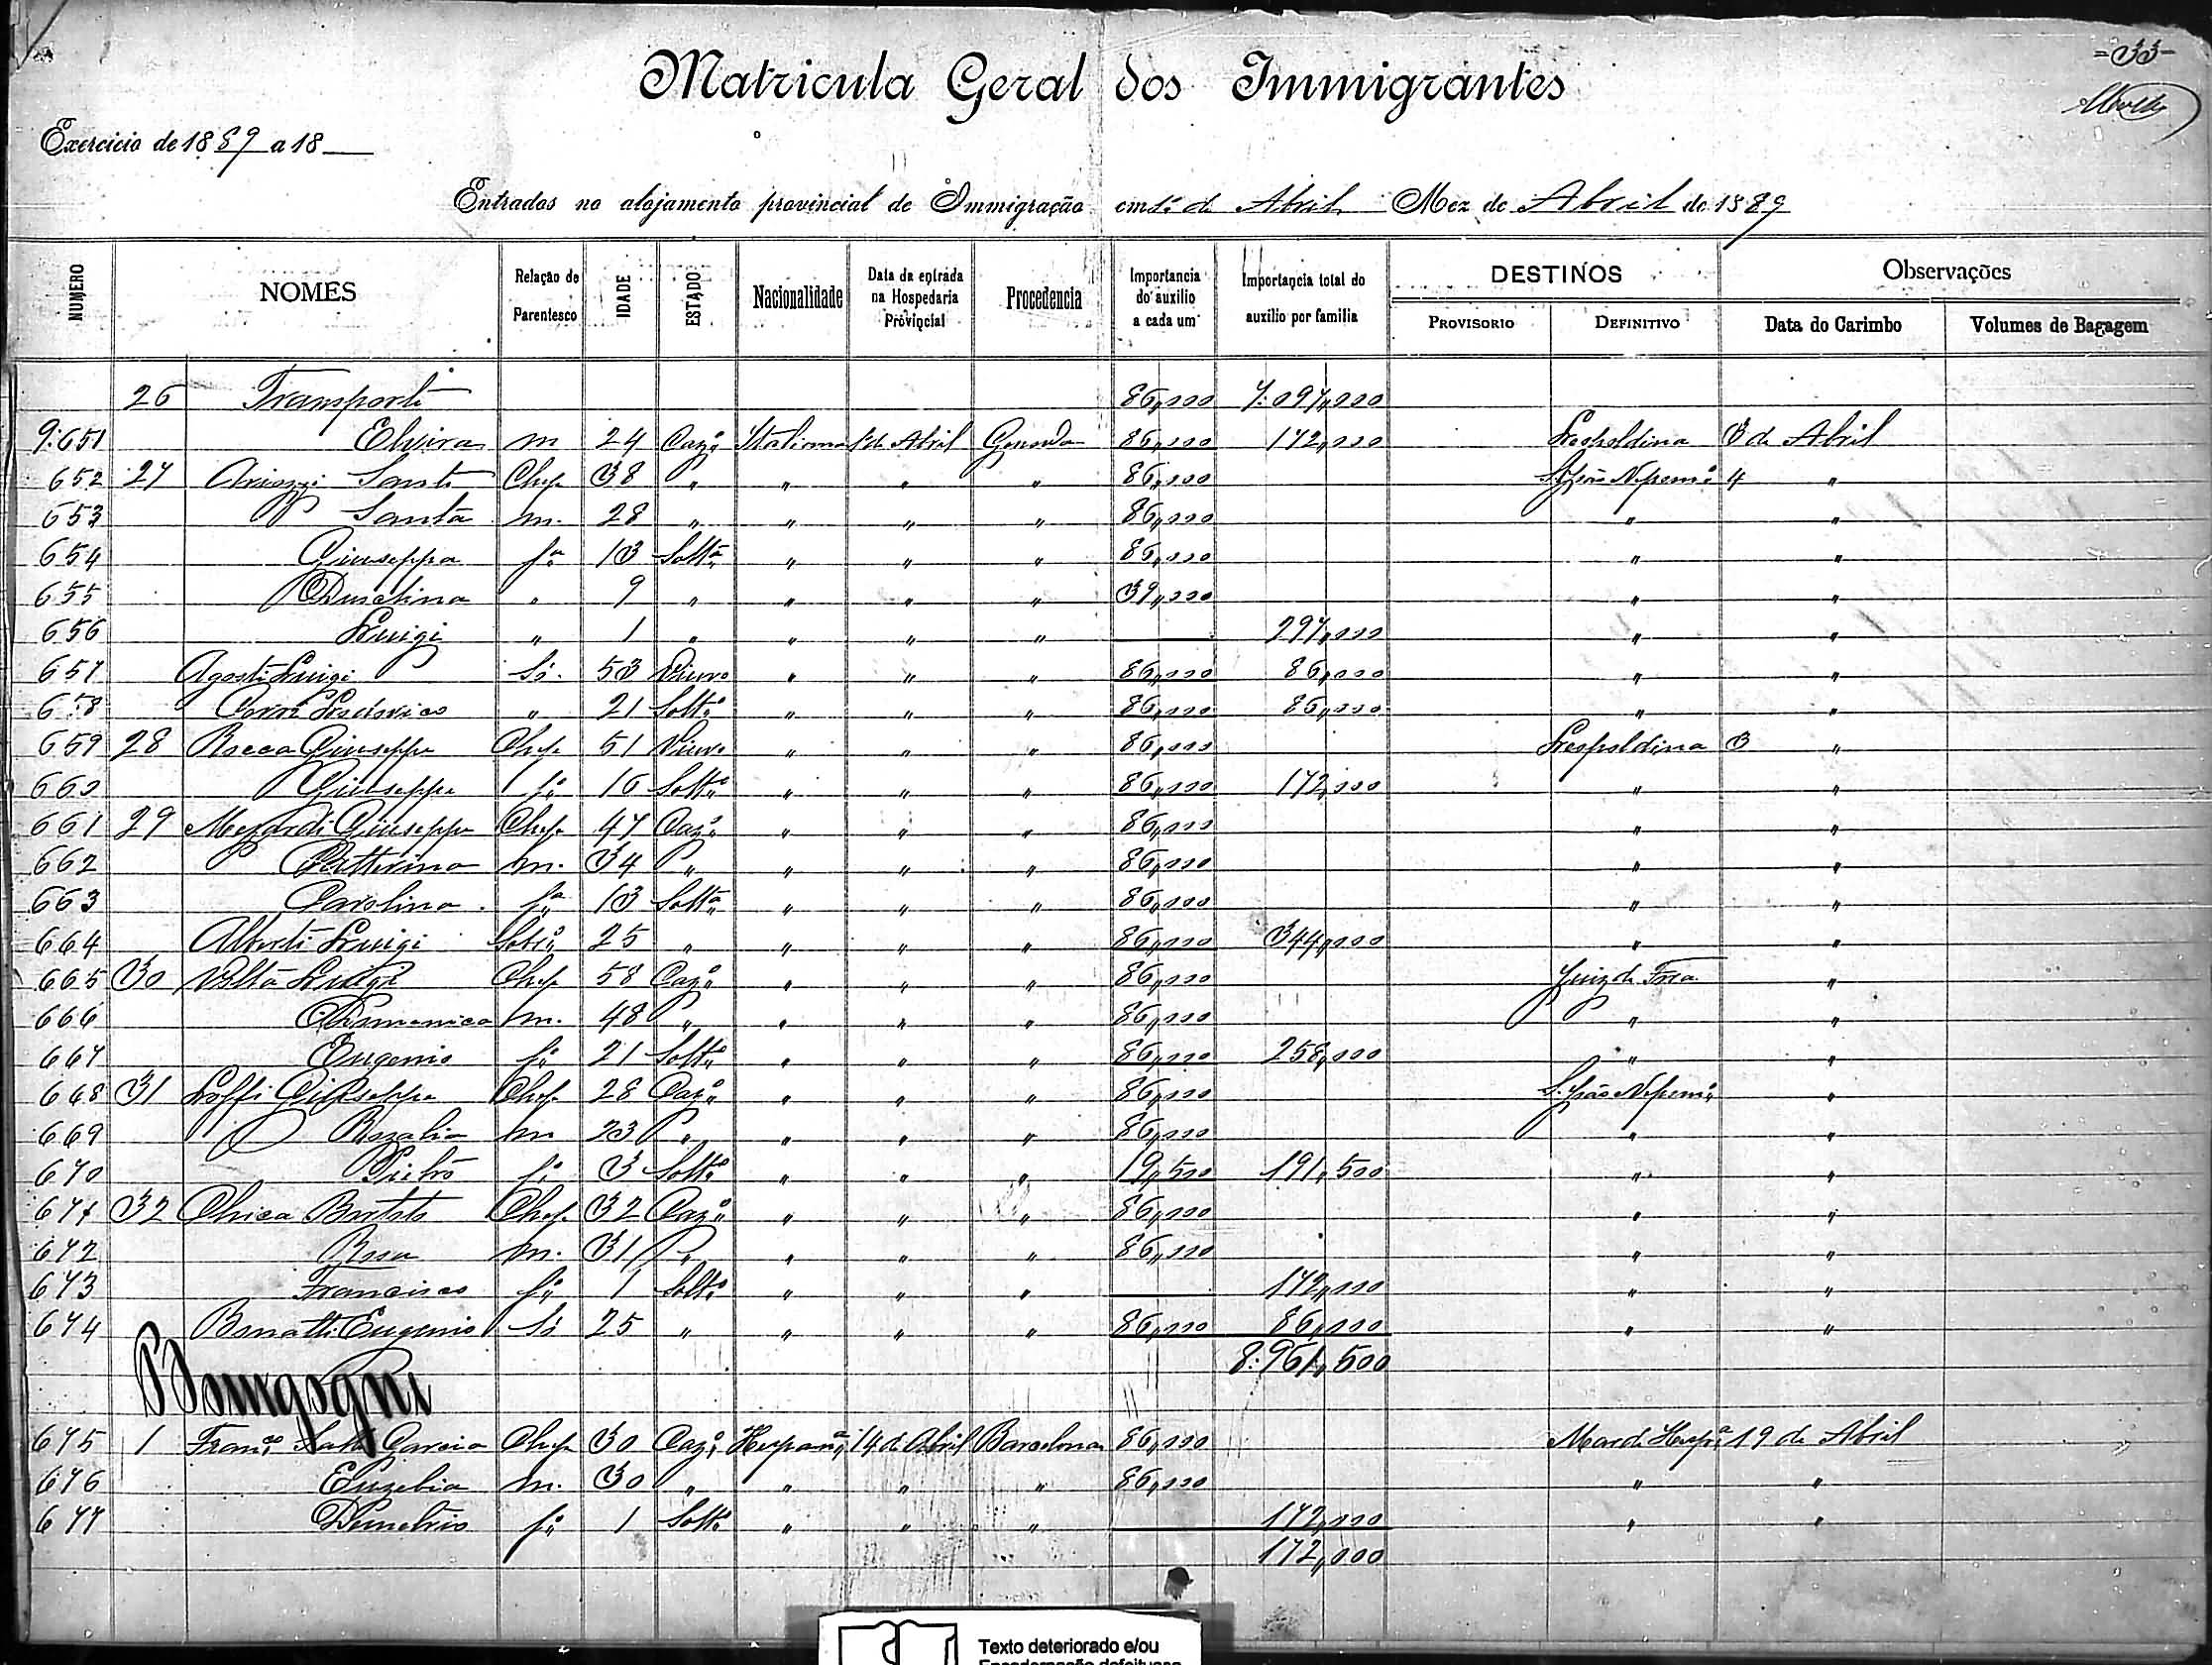 -33-
Matricula Geral dos Immigrantes
Exercicio de 1889 a 18
Entrados no alojamento provincial de Immigração em 1º de Abril Mez de Abril de 1889
NUMERO NOMES Relação de Parentesco IDADE ESTADO Nacionalidade Data da entrada na Hospedaria Provincial Procedencia Importancia do auxilio a cada um Importancia total do auxilio por familia DESTINOS Observações
PROVISORIO DEFINITIVO Data do Carimbo Volumes de Bagagem
26 Transporte 86,000 7:097,000
9:651 Elvira m 24 Cazº Italiana 1 de Abril Genova 86,000 172,000 Leopoldina 3 de Abril
652 27 Santi Chefe 38 " " " " 86,000 S. João Nepomº 4 "
653 Santa m. 28 " " " " 86,000 " "
654 Giuseppa fª 13 Soltª " " " 86,000 " "
655 " 9 " " " " 39,000 " "
656 Luigi " 1 " " " " 297,000 " "
657 Agosti Luigi Só. 53 Viuvo " " " 86,000 86,000 " "
658 " 21 Soltº " " " 86,000 86,000 " "
659 28 Rocca Giuseppe Chefe 51 Viuvo " " " 86,000 Leopoldina 3 "
660 Giuseppe fº 16 Soltº " " " 86,000 172,000 " "
661 29 Giuseppe Chefe 47 Cazº " " " 86,000 " "
662 Catterina m. 34 " " " " 86,000 " "
663 Carolina fª 13 Soltª " " " 86,000 " "
664 Alberti Luigi Sobrº 25 " " " " 86,000 344,000 " "
665 30 Volta Luigi Chefe 58 Cazº " " " 86,000 Juiz de Fora "
666 Domenica m. 48 " " " " 86,000 " "
667 Eugenio fº 21 Soltº " " " 86,000 258,000 " "
668 31 Loffi Giuseppe Chefe 28 Cazº " " " 86,000 S. João Nepomº "
669 Rozalia m 23 " " " " 86,000 " "
670 Pietro fº 3 Soltº " " " 19,500 191,500 " "
671 32 Chica Chefe 32 Cazº " " " 86,000 " "
672 Rosa m. 31 " " " " 86,000 " "
673 Francisco fº 1 Soltº " " " 172,000 " "
674 Bonatti Eugenio Só 25 " " " " 86,000 86,000 " "
8:961,500
Bourgogne
675 1 Franco Garcia Chefe 30 Cazº Hespanª 14 de Abril Barcelona 86,000 Mar de Hespª 19 de Abril
676 Euzebia m. 30 " " " " 86,000 " "
677 Demetrio fº 1 Soltº " " " 172,000 " "
172,000
Texto deteriorado e/ou